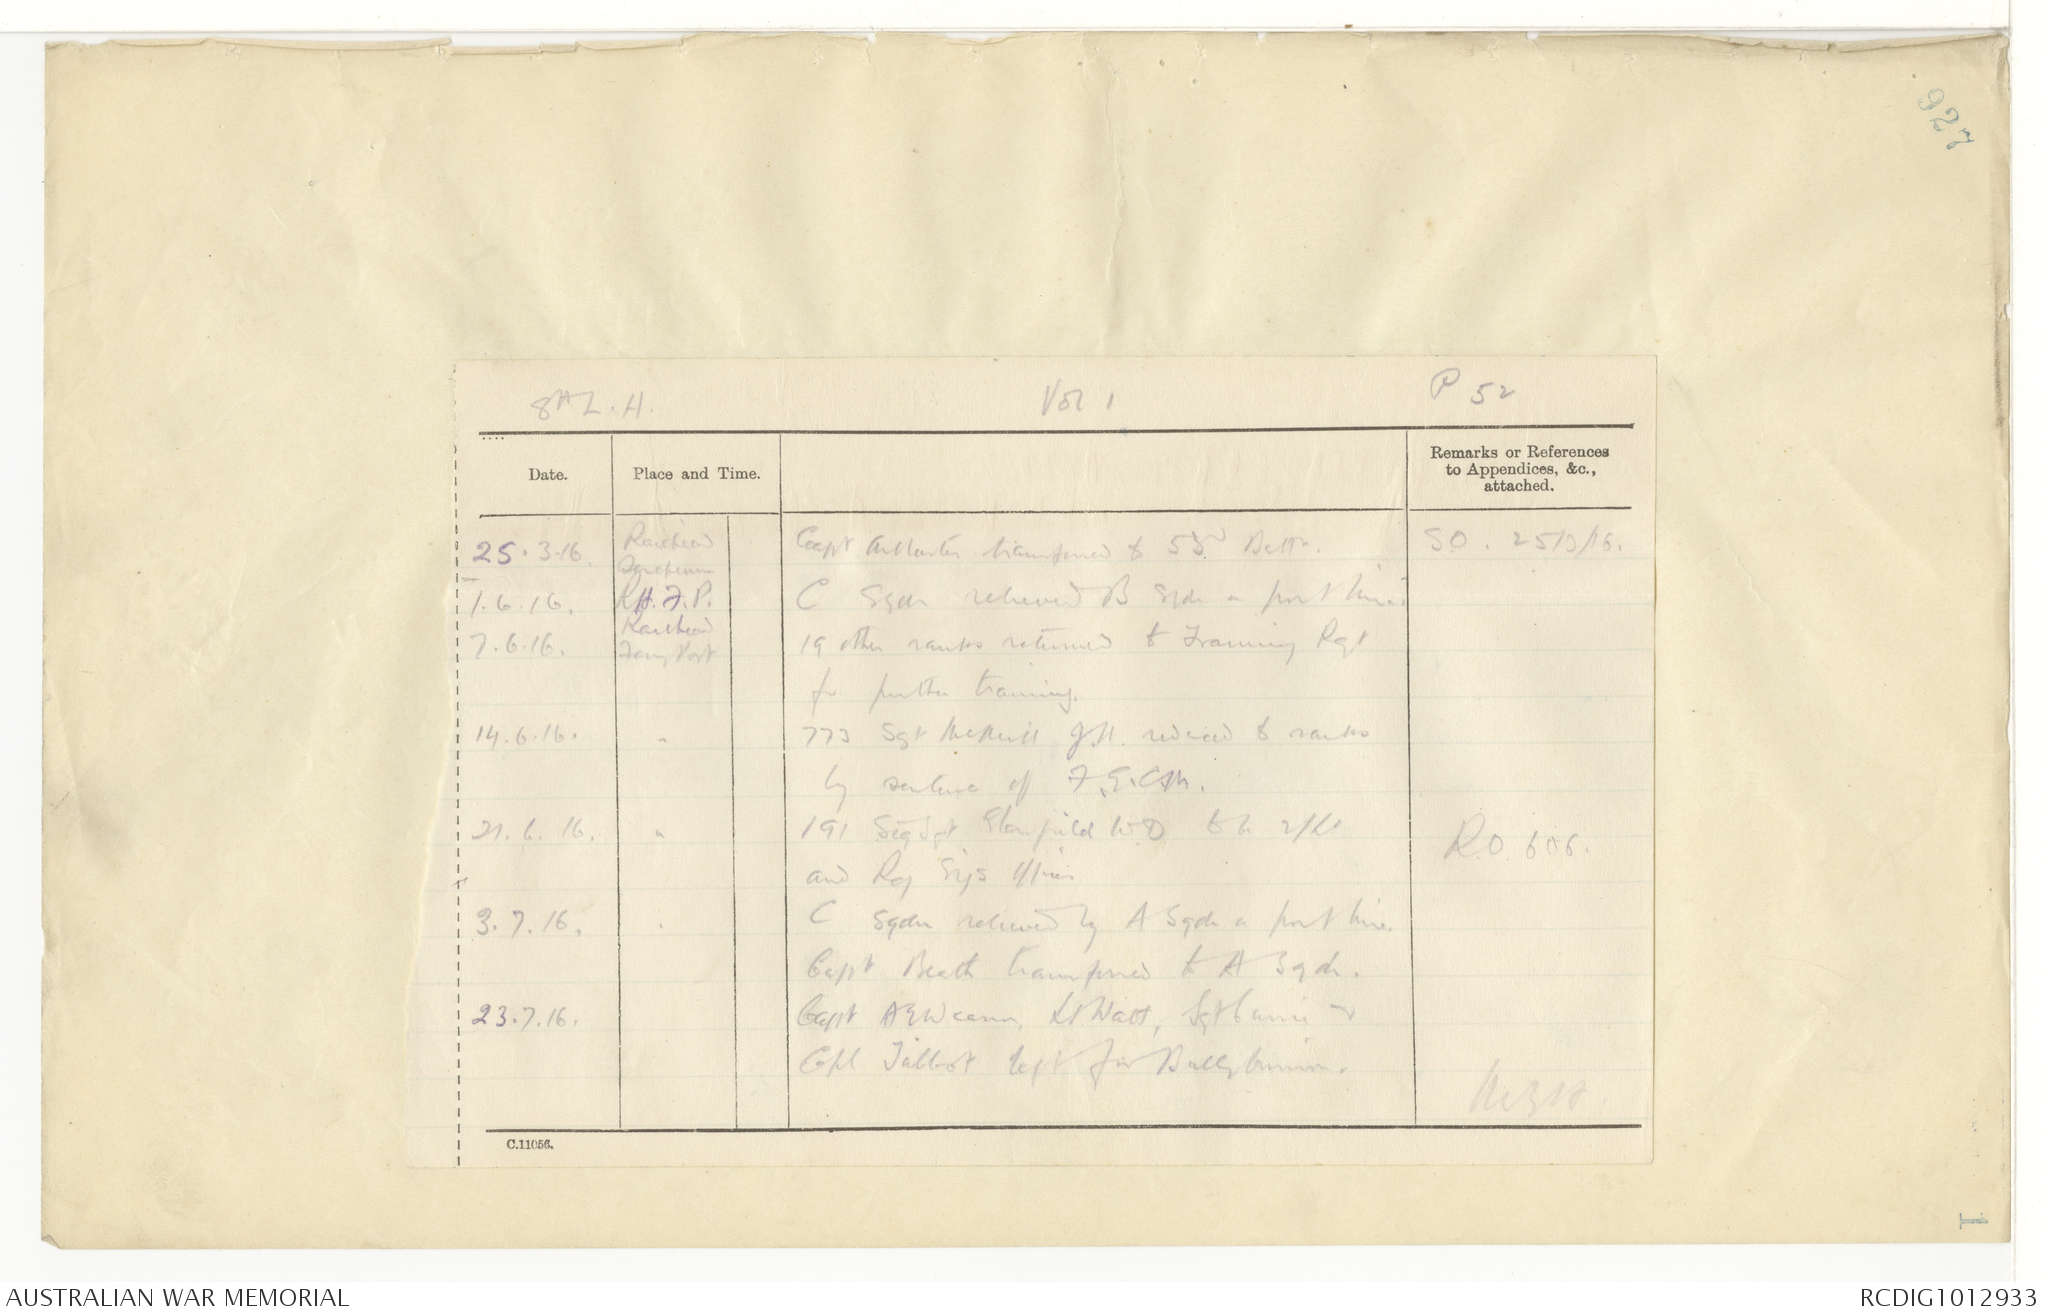 927
8th L.H. Vol 1 P 52
Date. Place and Time. Remarks or References to Appendices, &c., attached.
25.3.16. Railhead Capt transferred to 53rd Battn. SO. 25/3/16.
1.6.16. R.H.F.P. C Sqdn relieved B Sqdn in front line.
7.6.16. Railhead Ferry Post 19 other ranks returned to Training Regt
for further training.
14.6.16. " 773 Sgt McNeill J.H. reduced to ranks
by sentence of F.G.C.M.
21.6.16. " 191 Sig Sgt Stanfield W.D. to be 2/Lt R.O. 606.
and Reg Sigs Officer
3.7.16. " C Sqdn relieved by A Sqdn in front line.
Capt Beath transferred to A Sqdn.
23.7.16. Capt A E Wearne, Lt Watt, Sgt Currie &
Corpl Talbot left for Ballybunion.
C.11056.
1
AUSTRALIAN WAR MEMORIAL RCDIG1012933